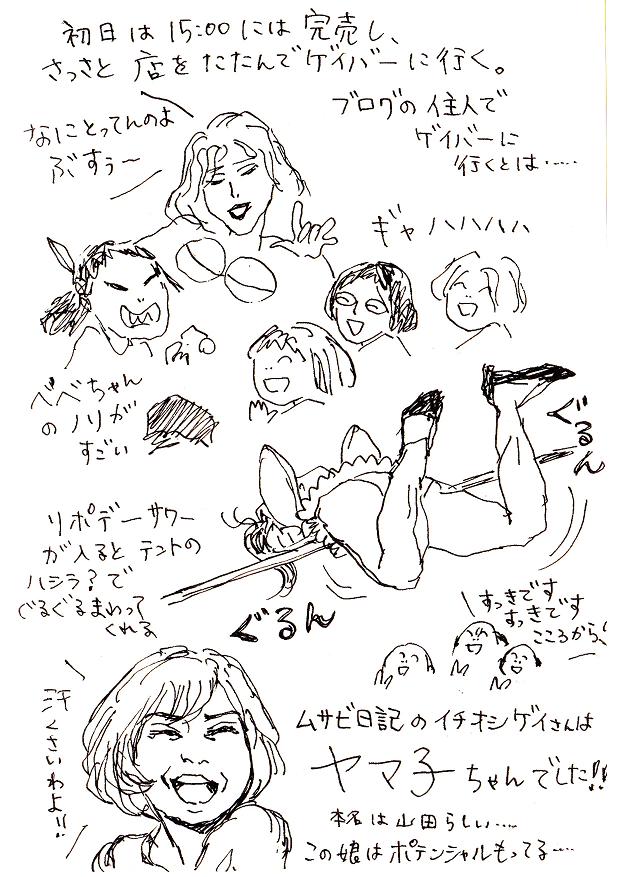 初日は15:00には完売し、
さっさと店をたたんでゲイバーに行く。
なにとってんのよ
ぶすぅ〜
ブログの住人で
ゲイバーに
行くとは……
ギャハハハハ
べべちゃん
のノリが
すごい
ぐるん
リポデーサワー
が入るとテントの
ハシラ?で
ぐるぐるまわって
くれる
ぐるん
すっきです
すっきです
こころから、
汗くさいわよ!!
ムサビ日記のイチオシゲイさんは
ヤマ子ちゃんでした!!
本名は山田らしい……
この娘はポテンシャルもってる……